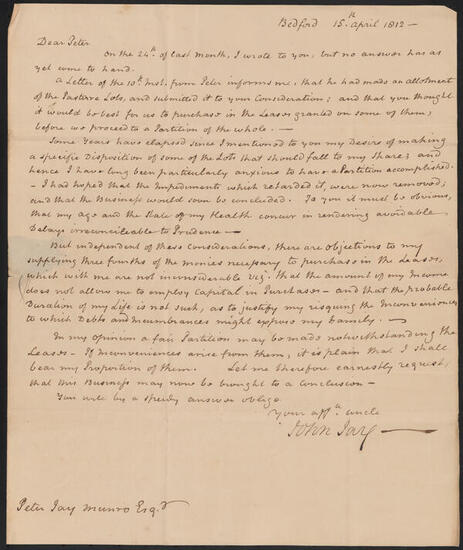 Bedford 15.th april 1812 —
Dear Peter
on the 24.th of last month, I wrote to you, but no answer has as
yet come to hand.
a Letter of the 10.th Inst. from Peter informs me, that he had made an allotment
of the Pasture Lots, and submitted it to your Consideration; and that you thought
it would be best for us to purchase in the Leases granted on some of them,
before we proceed to a Partition of the whole. —
Some Years have elapsed since I mentioned to you my Desire of making
a specific Disposition of some of the Lots that should fall to my Share; and
hence I have long been particularly anxious to have a Partition accomplished.
— I had hoped that the Impediments which retarded it, were now removed;
and that the Business would soon be concluded. To you it must be obvious,
that my age and the State of my Health concur in rendering avoidable
Delays irreconcileable to Prudence —
But independent of these Considerations, there are objections to my
supplying three fourths of the monies necessary to purchase in the Leases,
which with me are not inconsiderable viz.t that the amount of my Income
does not allow me to employ Capital in Purchases — and that the probable
Duration of my Life is not such, as to justify my risquing the Inconveniences
to which Debts and Incumbrances might expose my Family. —
In my opinion a fair Partition may be made notwithstanding the
Leases — If Inconveniences arise from them, it is plain that I shall
bear my Proportion of them. Let me therefore earnestly request,
that this Business may now be brought to a Conclusion —
You will by a speedy answer oblige
Your aff.te uncle
John Jay —
Peter Jay Munro Esq.r